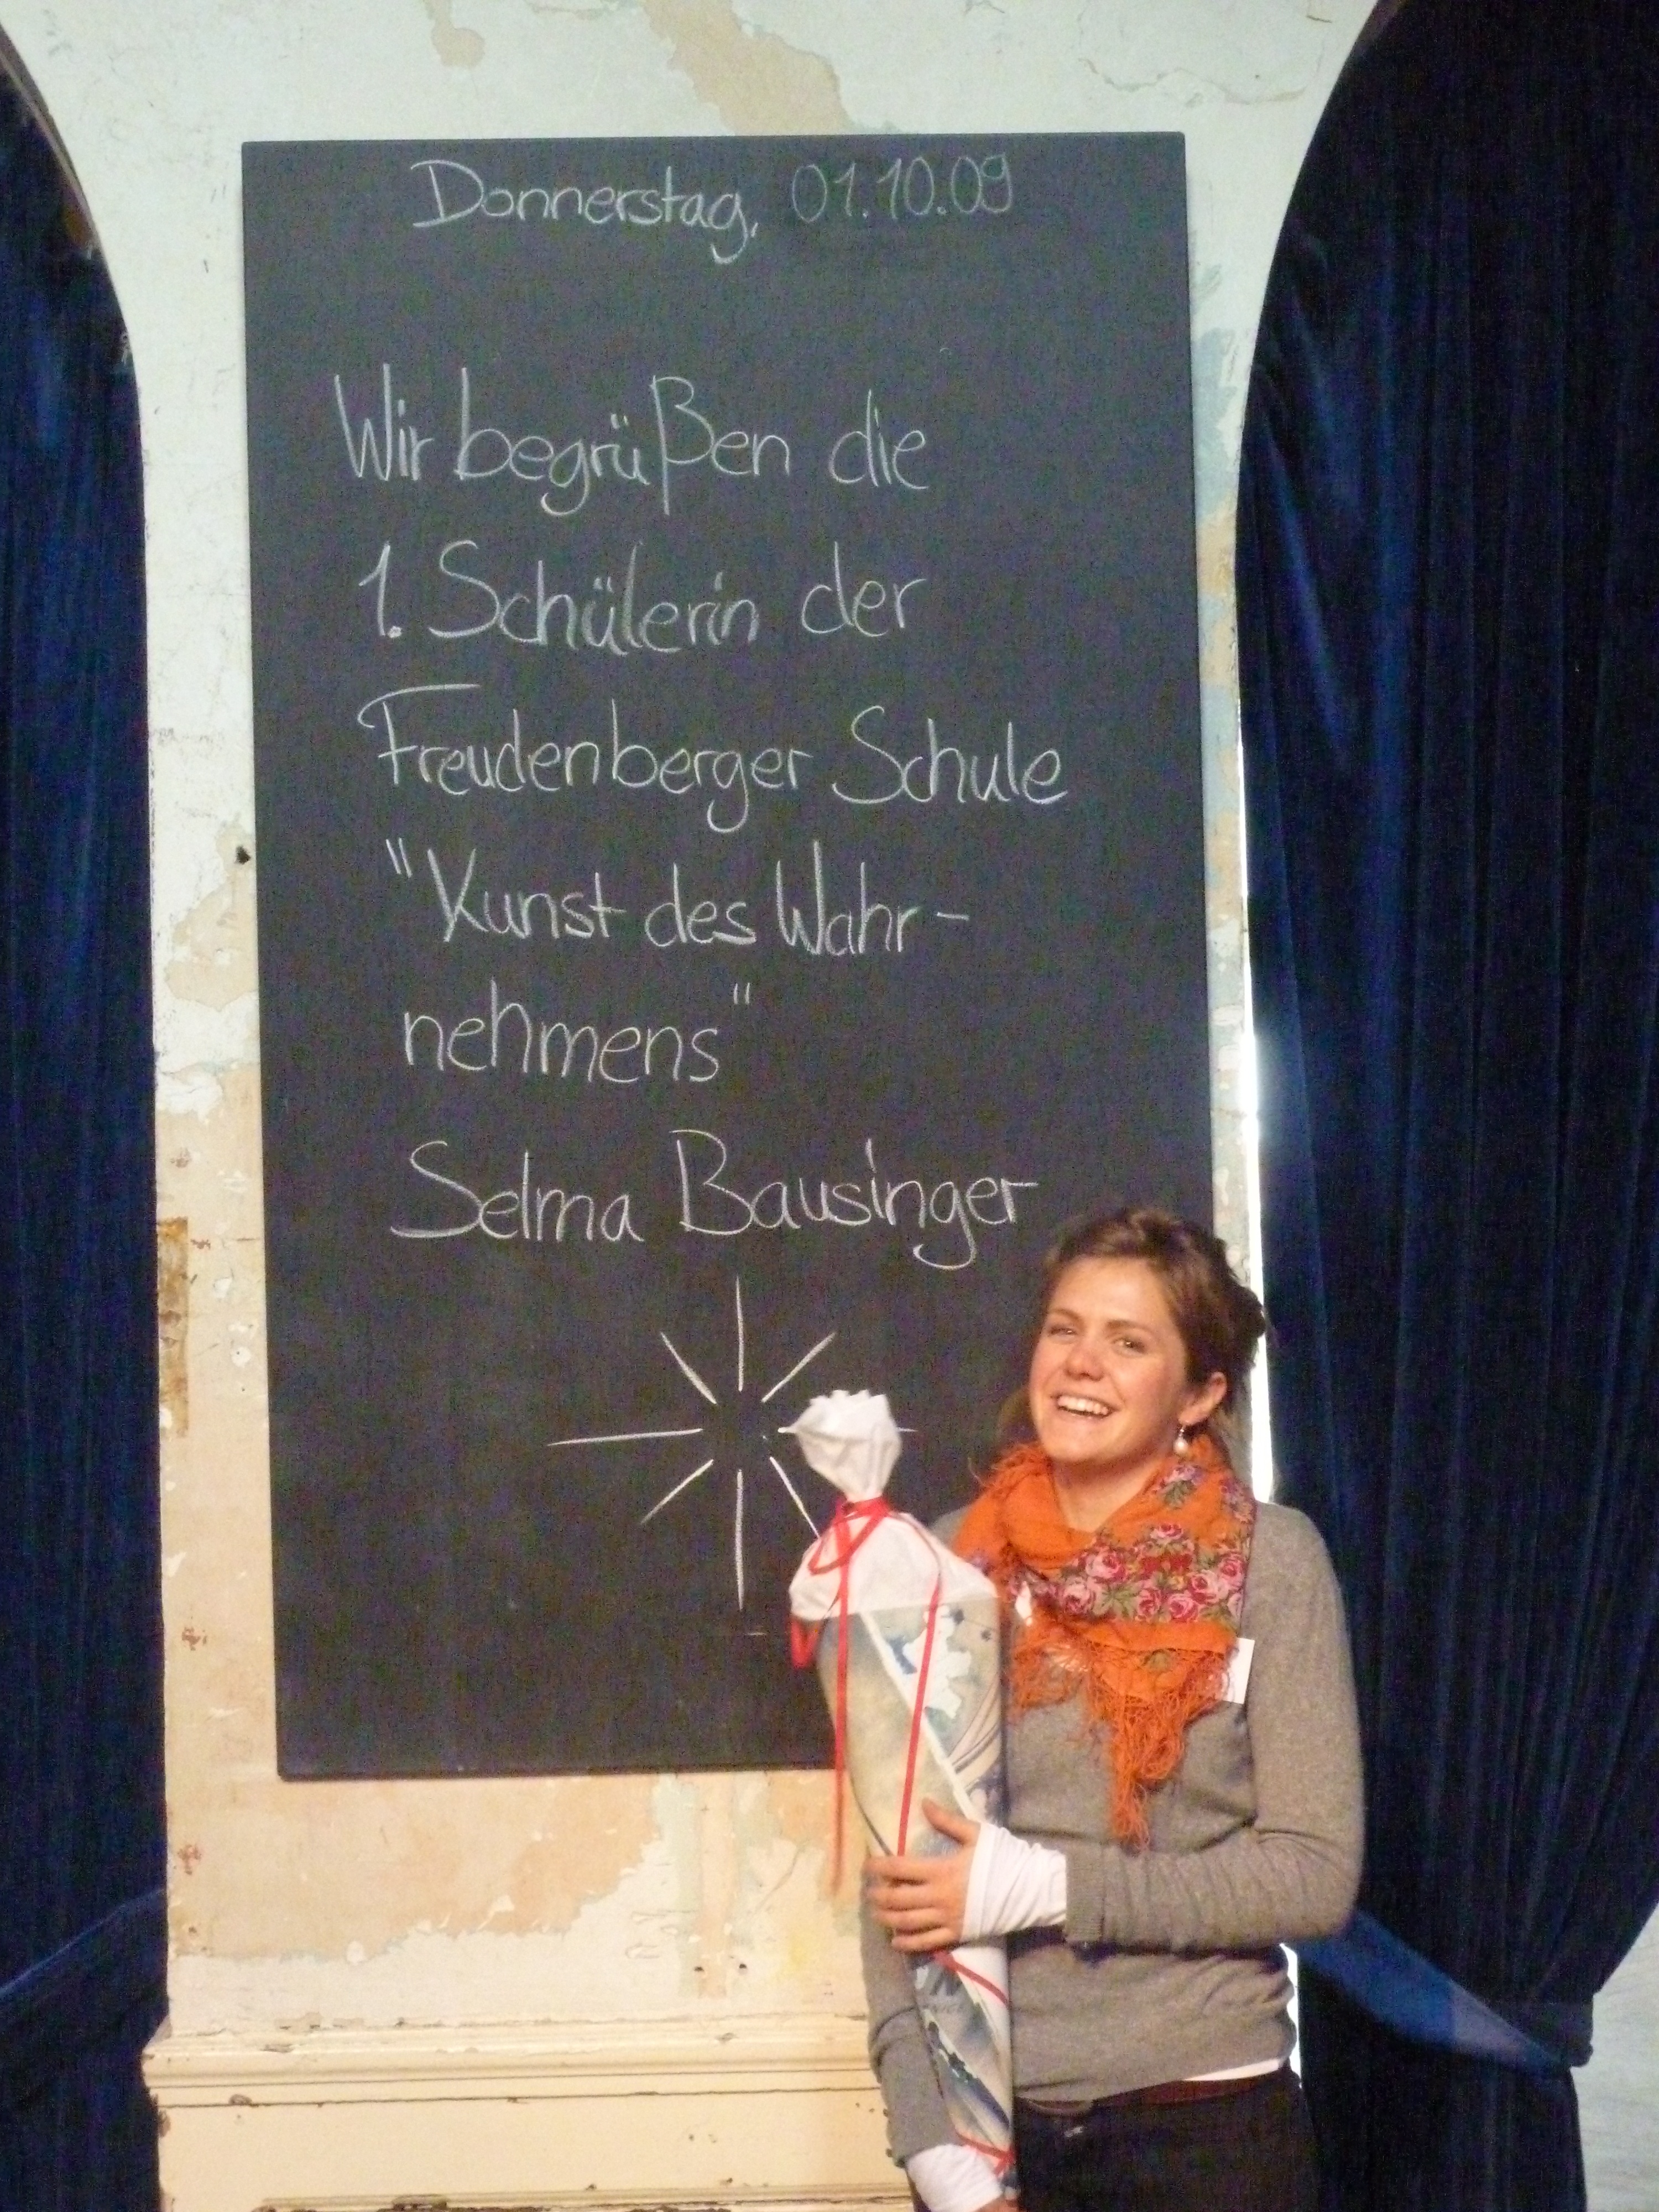 Donnerstag, 01.10.09
Wir begrüßen die
1. Schülerin der
Freudenberger Schule
"Kunst des Wahr-
nehmens"
Selma Bausinger